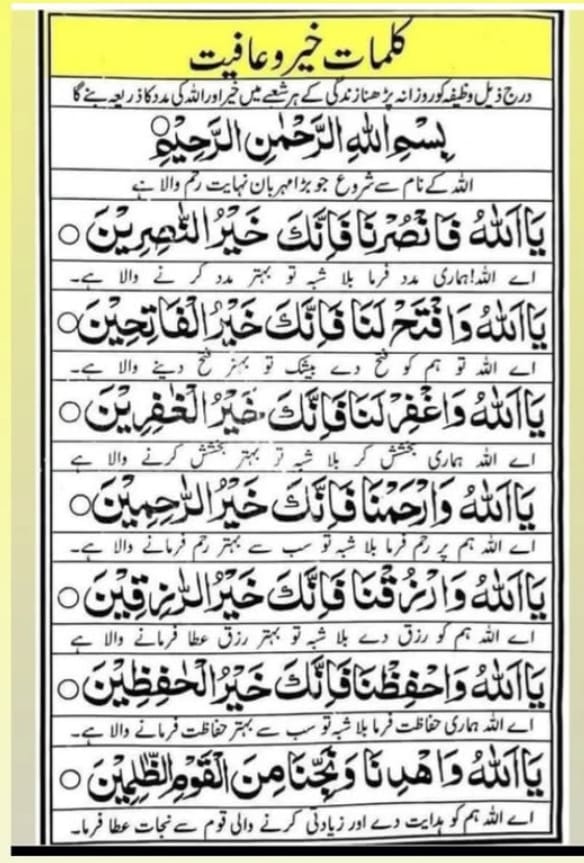 کلمات خیر و عافیت
درج ذیل وظیفہ کو روزانہ پڑھنا زندگی کے ہر شعبے میں خیر اور اللہ کی مدد کا ذریعہ بنے گا
بِسْمِ اللهِ الرَّحْمٰنِ الرَّحِيْمِ
اللہ کے نام سے شروع جو بڑا مہربان نہایت رحم والا ہے
يَا اَللّٰهُ فَانْصُرْنَا فَاِنَّكَ خَيْرُ النّٰصِرِيْنَ ○
اے اللہ! ہماری مدد فرما بلا شبہ تو بہتر مدد کرنے والا ہے۔
يَا اَللّٰهُ وَافْتَحْ لَنَا فَاِنَّكَ خَيْرُ الْفَاتِحِيْنَ ○
اے اللہ تو ہم کو فتح دے بیشک تو بہتر فتح دینے والا ہے۔
يَا اَللّٰهُ وَاغْفِرْ لَنَا فَاِنَّكَ خَيْرُ الْغٰفِرِيْنَ ○
اے اللہ ہماری بخشش کر بلا شبہ تو بہتر بخشش کرنے والا ہے
يَا اَللّٰهُ وَارْحَمْنَا فَاِنَّكَ خَيْرُ الرّٰحِمِيْنَ ○
اے اللہ ہم پر رحم فرما بلا شبہ تو سب سے بہتر رحم فرمانے والا ہے۔
يَا اَللّٰهُ وَارْزُقْنَا فَاِنَّكَ خَيْرُ الرّٰزِقِيْنَ ○
اے اللہ ہم کو رزق دے بلا شبہ تو بہتر رزق عطا فرمانے والا ہے
يَا اَللّٰهُ وَاحْفِظْنَا فَاِنَّكَ خَيْرُ الْحٰفِظِيْنَ ○
اے اللہ ہماری حفاظت فرما بلا شبہ تو سب سے بہتر حفاظت فرمانے والا ہے۔
يَا اَللّٰهُ وَاهْدِنَا وَنَجِّنَا مِنَ الْقَوْمِ الظّٰلِمِيْنَ ○
اے اللہ ہم کو ہدایت دے اور زیادتی کرنے والی قوم سے نجات عطا فرما۔